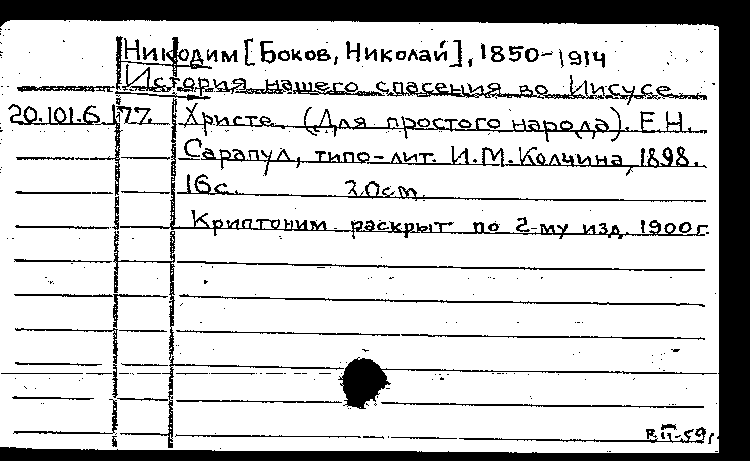 Никодим [Боков, Николай], 1850-1914
История нашего спасения во Иисусе
20.101.6.177. Христе. (Для простого народа). Е.Н.
Сарапул, типо-лит. И.М.Колчина, 1898.
16с. 20см.
Криптоним раскрыт по 2-му изд. 1900г.